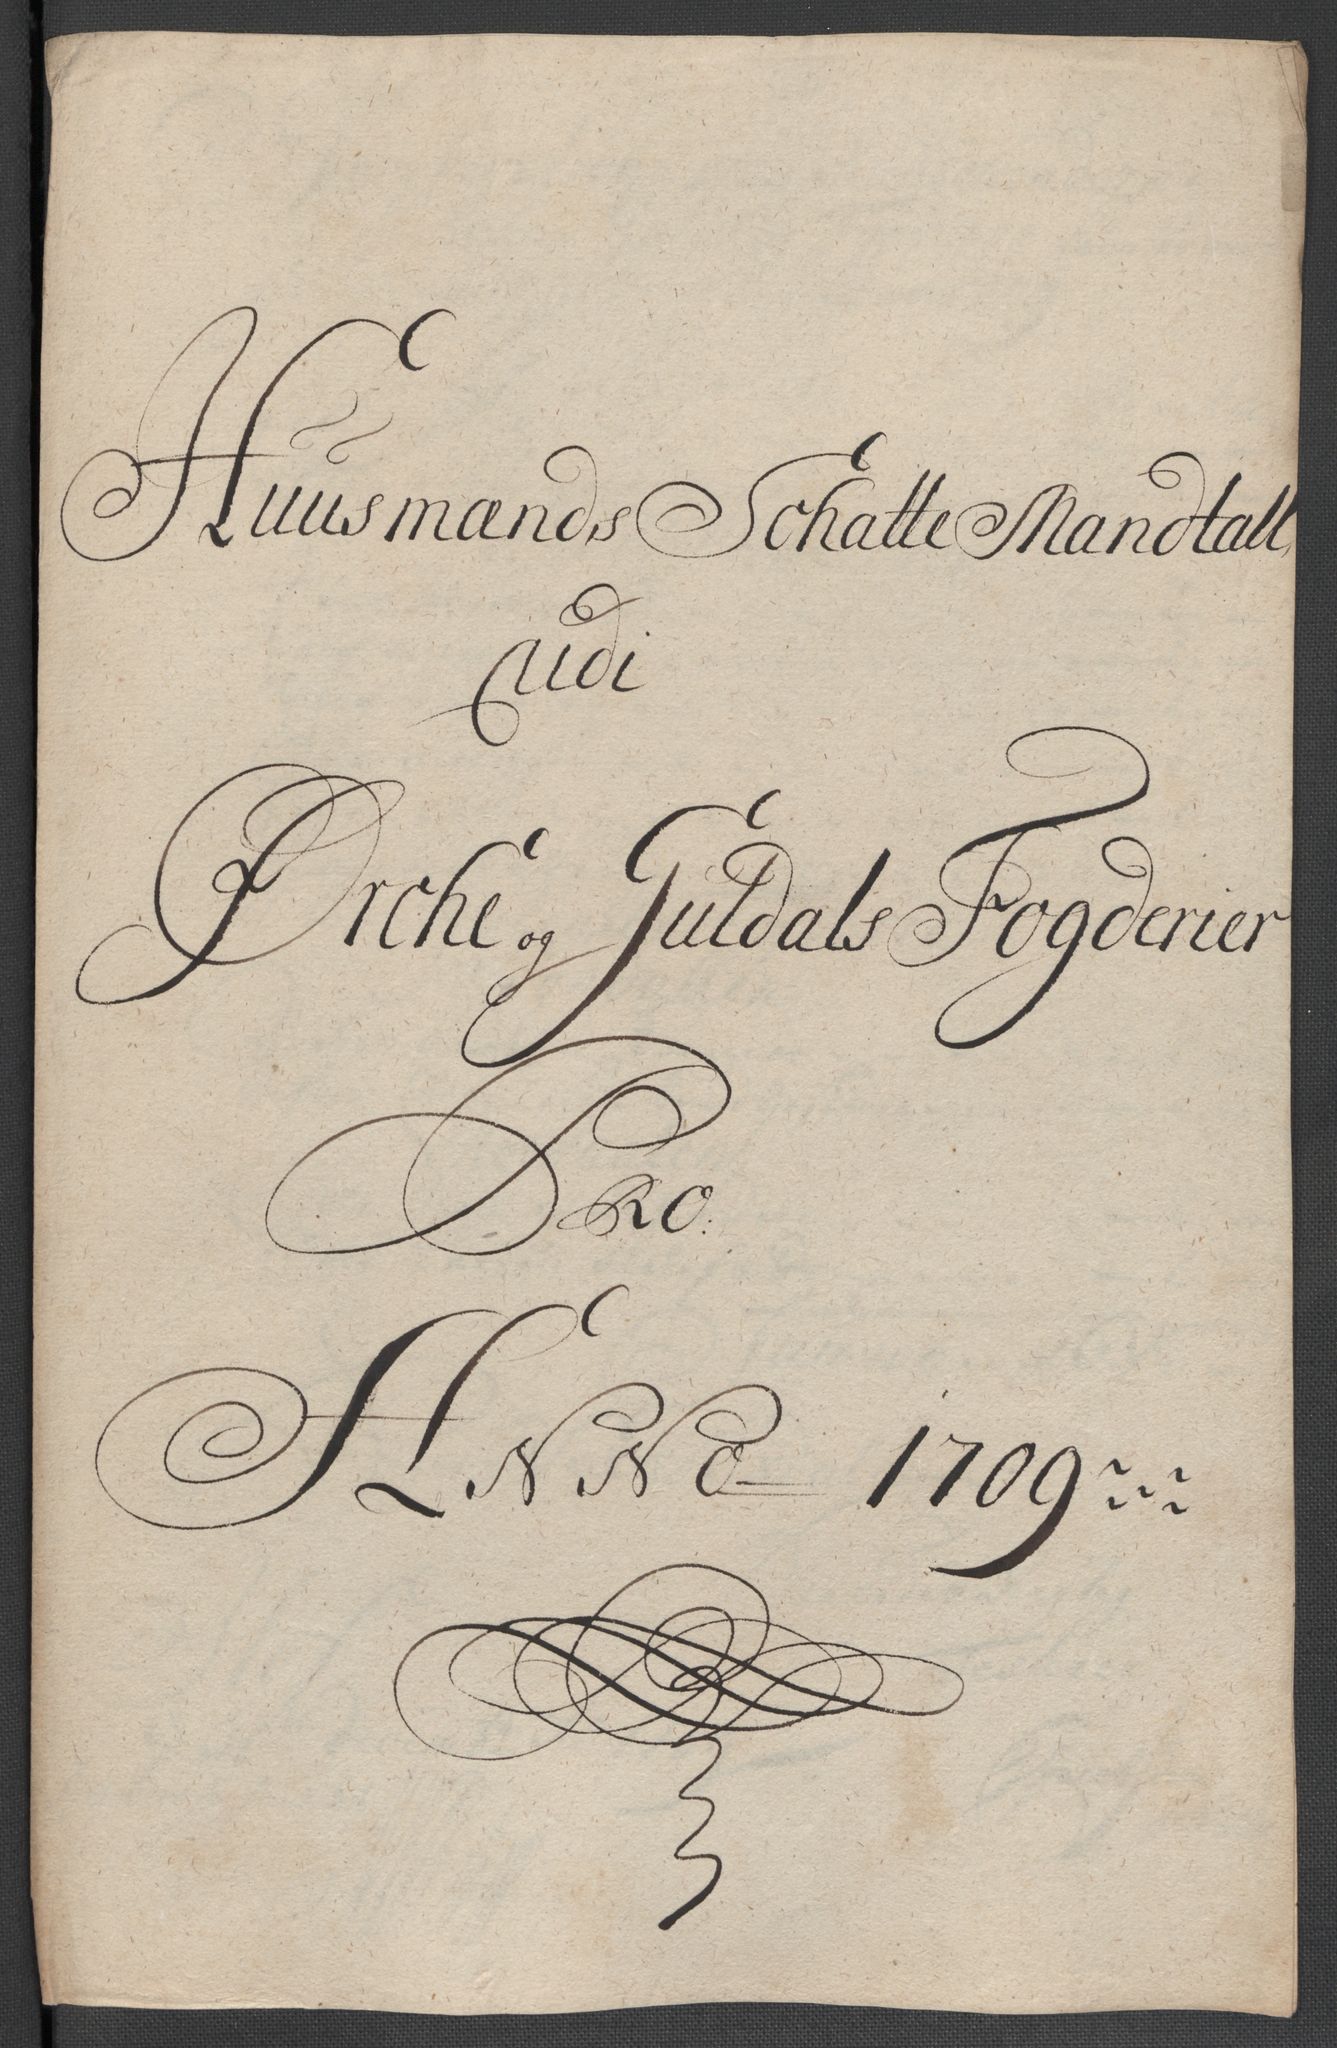 Huusmænds Schatte Mandtall
udi
Ørche og Guldals Fogderier
Pro:
Anno 1709